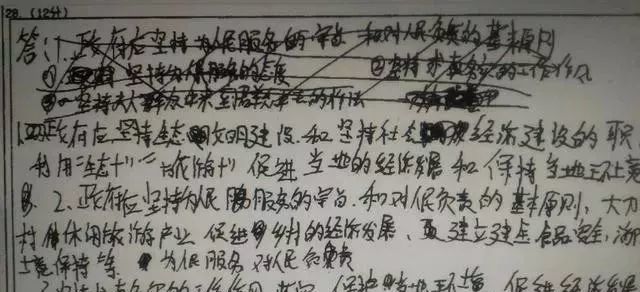 28.（12分）
答：1.政府应坚持为人民服务的宗旨 和对人民负责的基本原则
① 坚持为人民服务的态度 ②坚持求真务实的工作作风
③ 坚持从群众中来到群众中去的
1.政府应坚持生态文明建设和坚持社会经济建设的职
利用"生态十""旅游十"促进当地的经济发展和保持当地环境
2、政府应坚持为人民服务的宗旨.和对人民负责的基本原则，大力
村休闲旅游产业 促进乡村的经济发展、建立健全食品安全,
境保持等 为人民服务 对人民负责
求真务实的工作作风 保护当地环境 促进经济发展